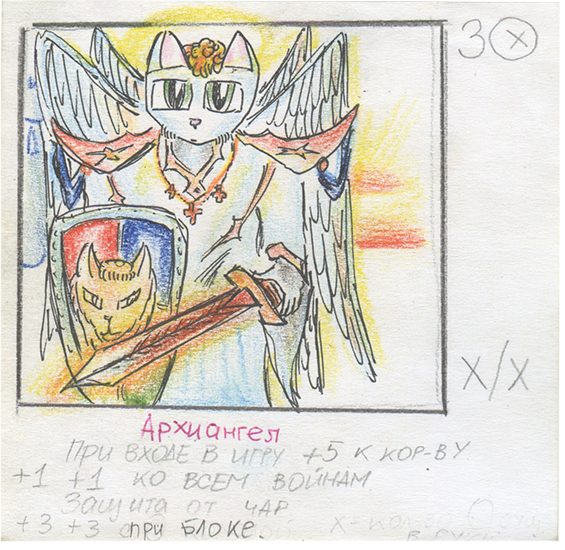 3 (X)
X/X
Архиангел
При входе в игру +5 к кор-ву
+1 +1 ко всем войнам
Защита от чар
+3 +3 при блоке.
X -